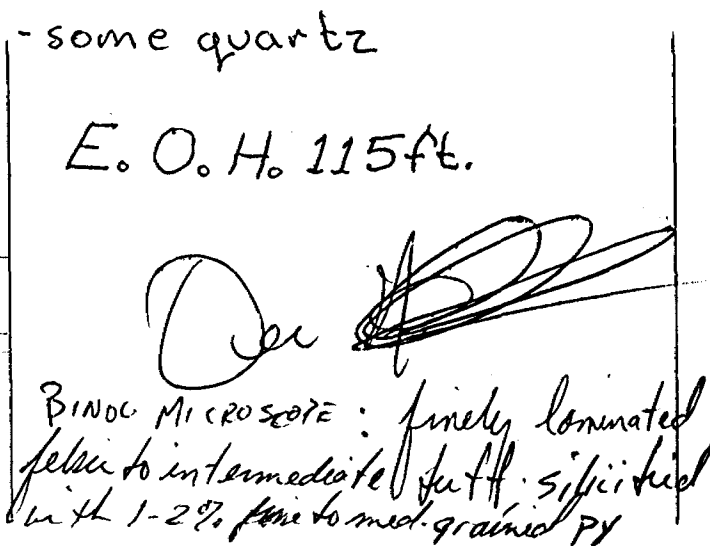 - some quartz
E. O. H. 115ft.
BINOC MICROSCOPE : finely laminated
felsic to intermediate tuff. silicified
with 1-2% fine to med. grained py